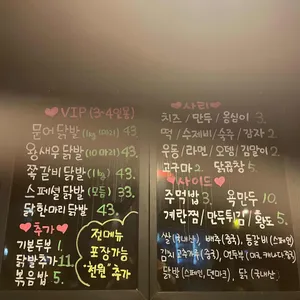 ♥VIP(3-4인용)♥
문어닭발(1kg 10마리) 43.
왕새우닭발(10마리) 43.
쪽갈비닭발(1kg) 43.
스페셜닭발(모듬) 33.
닭한마리닭발 43.
♥추가♥
기본두부 1.
닭발추가 11.
볶음밥 5.
전메뉴
포장가능
천원↑추가
♥사리♥
치즈/만두/옹심이 3.
떡/수제비/숙주/감자 2.
우동/라면/오뎅/김말이 2.
고구마 2. 닭곱창 5.
♥사이드♥
주먹밥 3. 육만두 10.
계란찜/만두튀김/황도 5.
쌀(국내산) 배추(중국), 등갈비(스페인)
김치 고추가루(중국),
닭발(스페인, 덴마크) 닭(국내산)